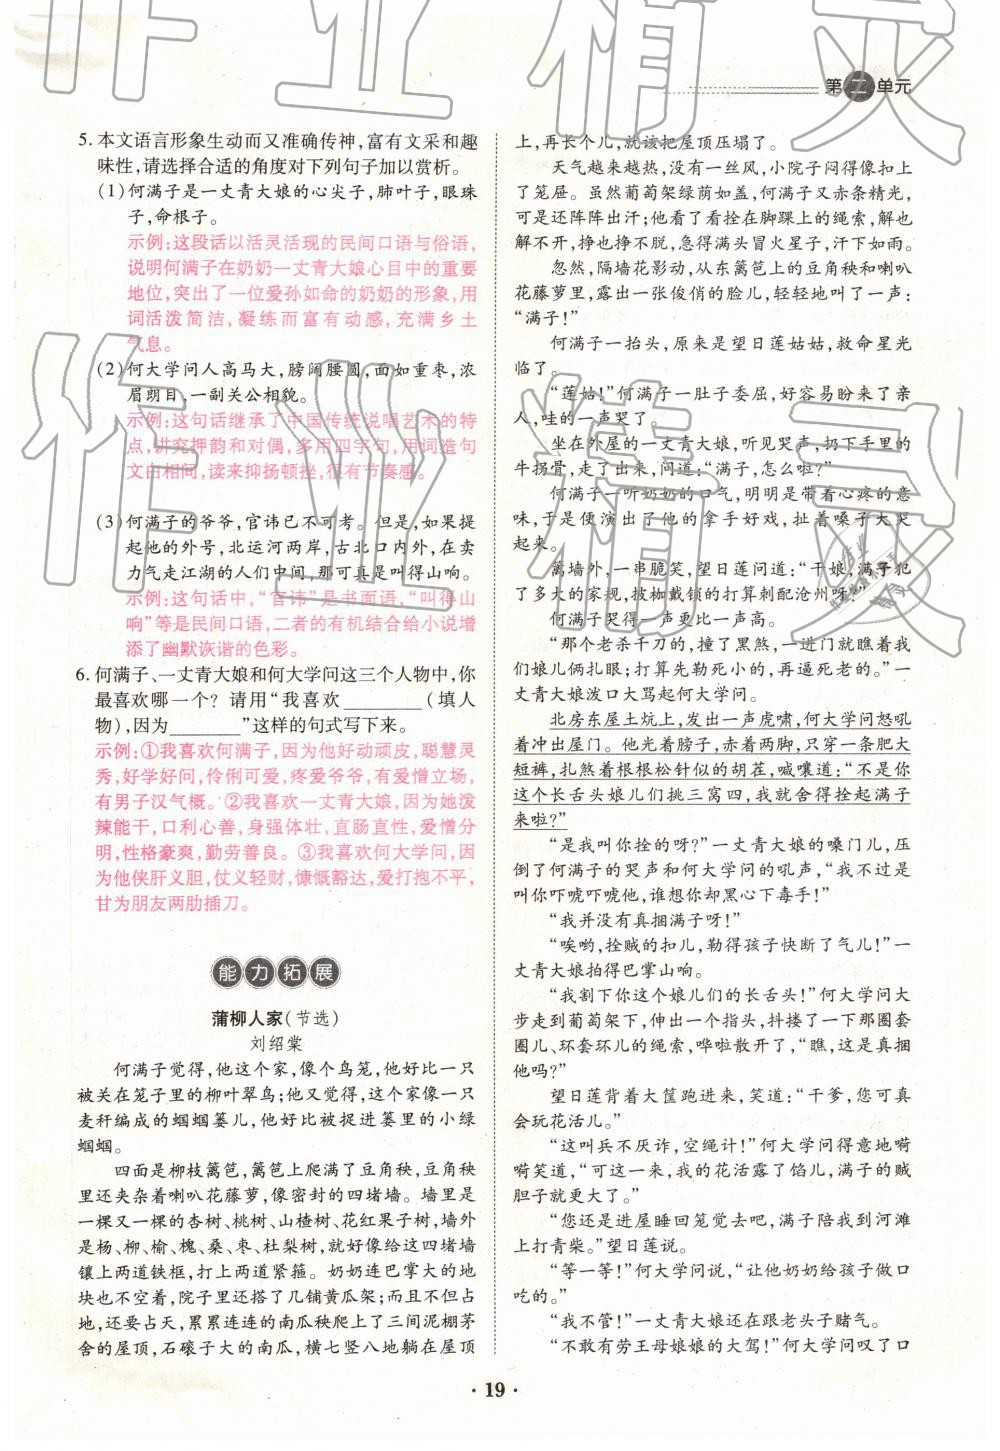 第二单元
5. 本文语言形象生动而又准确传神,富有文采和趣
味性,请选择合适的角度对下列句子加以赏析。
(1)何满子是一丈青大娘的心尖子,肺叶子,眼珠
子,命根子。
示例:这段话以活灵活现的民间口语与俗语,
说明何满子在奶奶一丈青大娘心目中的重要
地位,突出了一位爱孙如命的奶奶的形象,用
词活泼简洁,凝练而富有动感,充满乡土
气息。
(2)何大学问人高马大,膀阔腰圆,面如重枣,浓
眉朗目,一副关公相貌。
示例:这句话继承了中国传统说唱艺术的特
点,讲究押韵和对偶,多用四字句,用词造句
文白相间,读来抑扬顿挫,很有节奏感。
(3)何满子的爷爷,官讳已不可考。但是,如果提
起他的外号,北运河两岸,古北口内外,在卖
力气走江湖的人们中间,那可真是叫得山响。
示例:这句话中,“官讳”是书面语,“叫得山
响”等是民间口语,二者的有机结合给小说增
添了幽默诙谐的色彩。
6. 何满子、一丈青大娘和何大学问这三个人物中,你
最喜欢哪一个?请用“我喜欢________(填人
物),因为________”这样的句式写下来。
示例:①我喜欢何满子,因为他好动顽皮,聪慧灵
秀,好学好问,伶俐可爱,疼爱爷爷,有爱憎立场,
有男子汉气概。②我喜欢一丈青大娘,因为她泼
辣能干,口利心善,身强体壮,直肠直性,爱憎分
明,性格豪爽,勤劳善良。③我喜欢何大学问,因
为他侠肝义胆,仗义轻财,慷慨豁达,爱打抱不平,
甘为朋友两肋插刀。
能力拓展
蒲柳人家(节选)
刘绍棠
何满子觉得,他这个家,像个鸟笼,他好比一只
被关在笼子里的柳叶翠鸟;他又觉得,这个家,像一只
麦秆编成的蝈蝈篓儿,他好比被捉进篓里的小绿
蝈蝈。
四面是柳枝篱笆,篱笆上爬满了豆角秧,豆角秧
里还夹杂着喇叭花藤萝,像密封的四堵墙。墙里是
一棵又一棵的杏树、桃树、山楂树、花红果子树,墙外
是杨、柳、榆、槐、桑、枣、杜梨树,就好像给这四堵墙
镶上两道铁框,打上两道紧箍。奶奶连巴掌大的地
块也不空着,院子里还搭了几铺黄瓜架;而且不但占
地,还要占天,累累连连的南瓜秧爬上了三间泥棚茅
舍的屋顶,石磙子大的南瓜,横七竖八地躺在屋顶
上,再长个儿,就该把屋顶压塌了。
天气越来越热,没有一丝风,小院子闷得像扣上
了笼屉。虽然葡萄架绿荫如盖,何满子又赤条精光,
可是还阵阵出汗;他看了看拴在脚踝上的绳索,解也
解不开,挣也挣不脱,急得满头冒火星子,汗下如雨。
忽然,隔墙花影动,从东篱笆上的豆角秧和喇叭
花藤萝里,露出一张俊俏的脸儿,轻轻地叫了一声:
“满子!”
何满子一抬头,原来是望日莲姑姑,救命星光
临了。
“莲姑!”何满子一肚子委屈,好容易盼来了亲
人,哇的一声哭了。
坐在外屋的一丈青大娘,听见哭声,扔下手里的
牛拐骨,走了出来,问道:“满子,怎么啦?”
何满子一听奶奶的口气,明明是带着心疼的意
味,于是便演出了他的拿手好戏,扯着嗓子大哭
起来。
篱墙外,一串脆笑,望日莲问道:“干娘,满子犯
了多大的家规,披枷戴锁的打算刺配沧州呀?”
何满子哭得一声更比一声高。
“那个老杀千刀的,撞了黑煞,一进门就瞧着我
们娘儿俩扎眼;打算先勒死小的,再逼死老的。”一
丈青大娘泼口大骂起何大学问。
北房东屋土炕上,发出一声虎啸,何大学问怒吼
着冲出屋门。他光着膀子,赤着两脚,只穿一条肥大
短裤,扎煞着根根松针似的胡茬,喊嚷道:“不是你
这个长舌头娘儿们挑三窝四,我就舍得拴起满子
来啦?”
“是我叫你拴的呀?”一丈青大娘的嗓门儿,压
倒了何满子的哭声和何大学问的吼声,“我不过是
叫你吓唬吓唬他,谁想你却黑心下毒手!”
“我并没有真捆满子呀!”
“唉哟,拴贼的扣儿,勒得孩子快断了气儿!”一
丈青大娘拍得巴掌山响。
“我割下你这个娘儿们的长舌头!”何大学问大
步走到葡萄架下,伸出一个指头,抖搂了一下那圈套
圈儿、环套环儿的绳索,哗啦散开了,“瞧,这是真捆
他吗?”
望日莲背着大筐跑进来,笑道:“干爹,您可真
会玩花活儿。”
“这叫兵不厌诈,空绳计!”何大学问得意地嗬
嗬笑道,“可这一来,我的花活露了馅儿,满子的贼
胆子就更大了。”
“您还是进屋睡回笼觉去吧,满子陪我到河滩
上打青柴。”望日莲说。
“等一等!”何大学问说,“让他奶奶给孩子做口
吃的。”
“我不管!”一丈青大娘还在跟老头子赌气。
“不敢有劳王母娘娘的大驾!”何大学问叹了口
· 19 ·
作业精灵
作业精灵